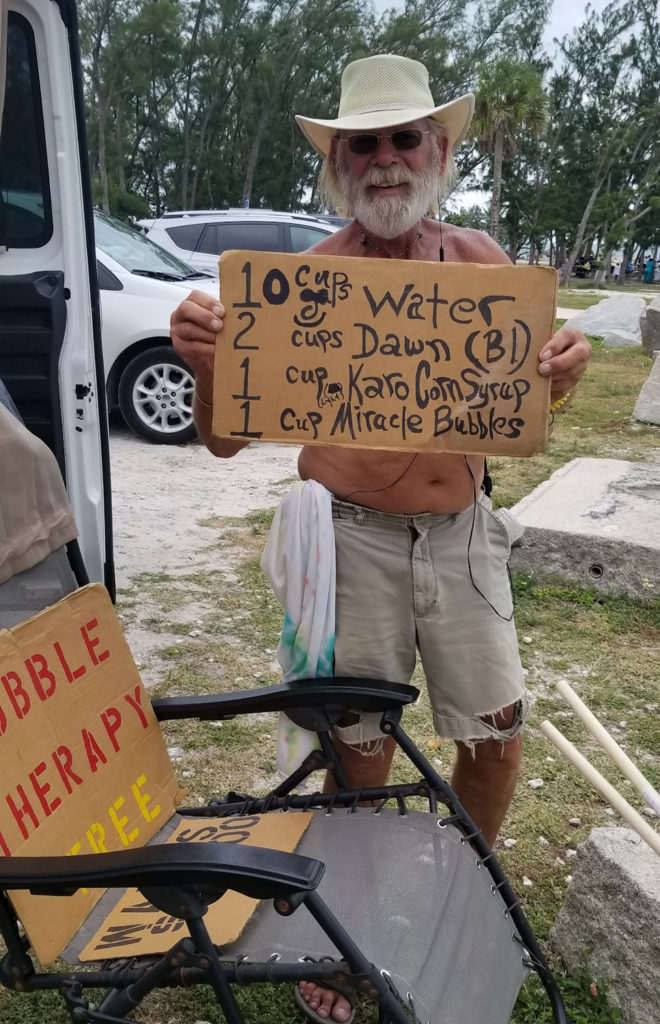 10 cups Water
2 cups Dawn (Bl)
1 cup Karo CornSyrup
1 Cup Miracle Bubbles
UBBLE
THERAPY
FREE